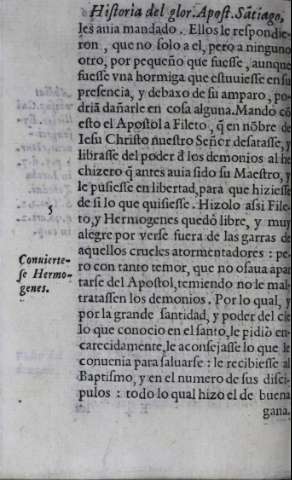 Historia del glor. Apost. Sātiago,
les auia mandado. Ellos le respondie-
ron, que no solo a el, pero a ninguno
otro, por pequeño que fuesse, aunque
fuesse vna hormiga que estuuiesse en su
presencia, y debaxo de su amparo, po-
driā dañarle en cosa alguna. Mando cō
esto el Apostol a Fileto, q̄ en nōbre de
Iesu Christo nuestro Señor desatasse, y
librasse del poder d̄ los demonios al he
chizero q̄ antes auia sido su Maestro, y
le pusiesse en libertad, para que hiziesse
5
de si lo que quisiesse. Hizolo assi File-
to, y Hermogenes quedò libre, y muy
alegre por verse fuera de las garras de
Conuierte-
se Hermo-
genes.
aquellos crueles atormentadores: pe-
ro con tanto temor, que no osaua apar
tarse del Apostol, temiendo no le mal-
tratassen los demonios. Por lo qual, y
por la grande santidad, y poder del cie
lo que conocio en el santo, le pidiò en-
carecidamente, le aconsejasse lo que le
conuenia para saluarse: le recibiesse al
Baptismo, y en el numero de sus disci-
pulos: todo lo qual hizo el de buena
gana.